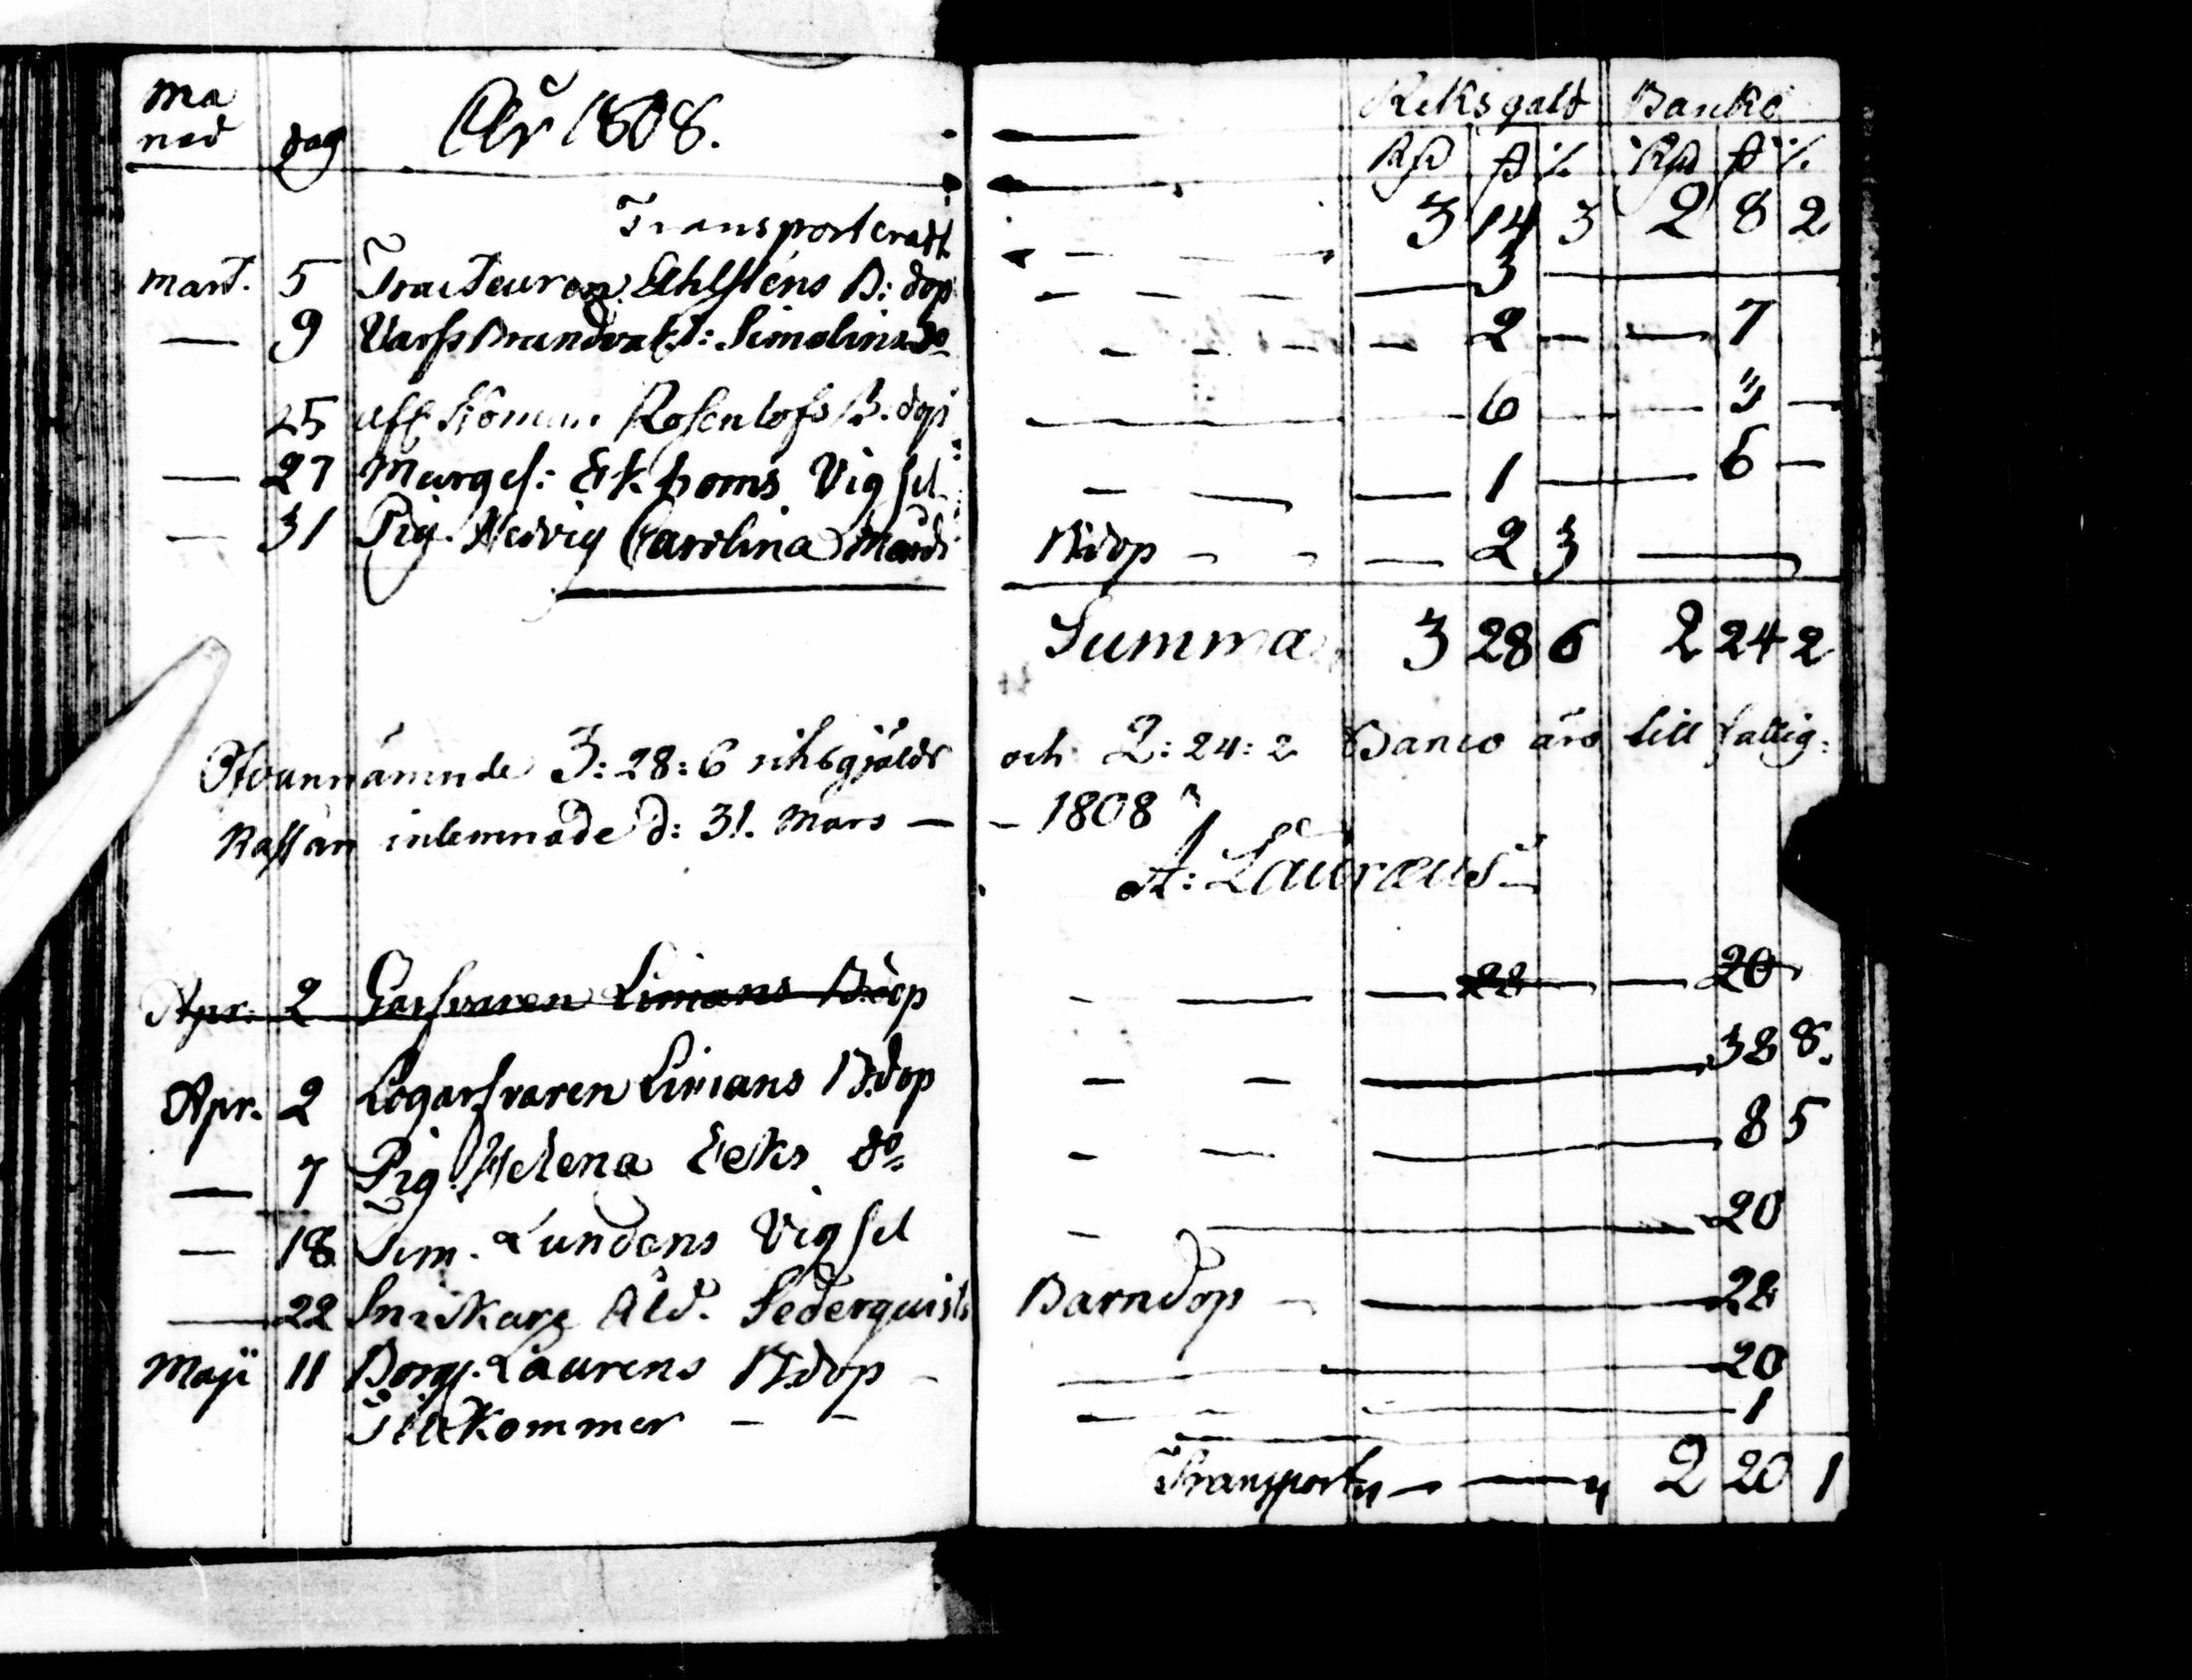 Må
nad dag År 1808. Riksgäld Banko
Rd ß /. Rd ß /.
Transporteradt 3 14 3 2 8 2
Mart. 5 Tracteuren Ahlsténs B: dop — 3 —
— 9 Varfs Brandvakt: Simelins Do — 2 — — 7
25 Rosenlöfs B. dop — 6 — — 3 —
— 27 Marges: Ekholms Vigsel — 1 — 6 —
— 31 Pig. Hedvig Carolina Månd: B.dop — 2 3 —
Summa 3 28 6 2 24 2
Ofvannämnde 3: 28: 6 riksgjälds och 2: 24: 2 Banco äro till fattig:
Kassan inlemnade d: 31. Mars — — 1808
A: Lauræus
Apr. 2 Garfvaren Limans B.dop — 28 — — 20
Apr. 2 Logarfvaren Limans B.dop — 38 8.
— 7 Pig. Helena Eeks Do — 8 5
— 18 Tim. Lundens Vigsel — 20
— 22 Snickare Åld. Sederquists Barndop — 28
Maji 11 Borg. Laurens B.dop — 20
Tillkommer — — 1
Transport — — 2 20 1